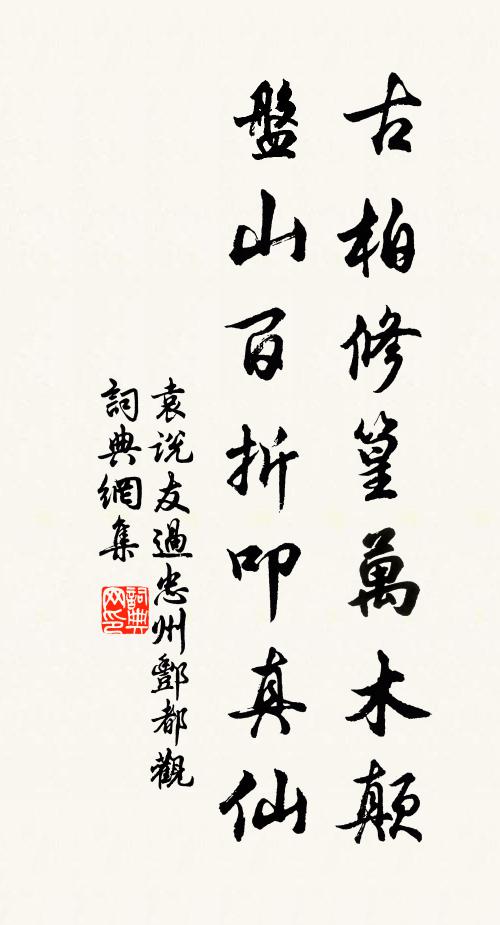 古柏修篁萬木顛
盤山百折叩真仙
袁说友過忠州酆都觀
詞典網集
詞典网印